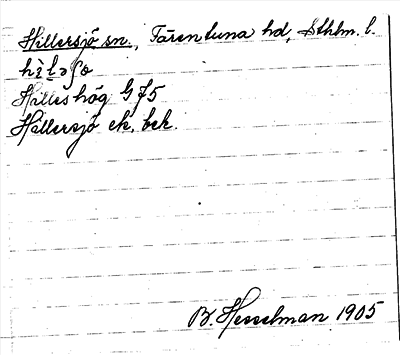 Hillersjö sn., Färentuna hd, Sthlm. l.
Hilleshög G 75
Hillersjö ek. bek.
B. Hesselman 1905